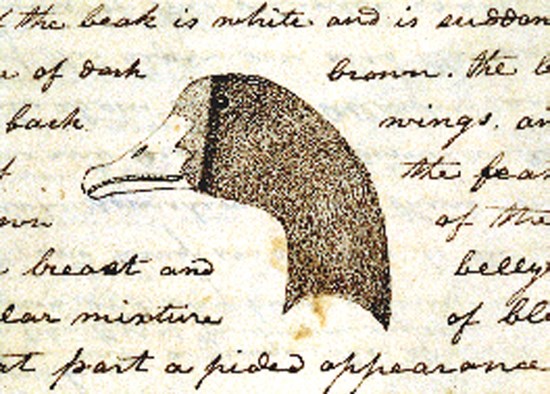 the beak is white and is sudden
of dark brown. the
back wings. an
the fea
of the
breast and belly
lar mixture of bl
at part a pided appearance